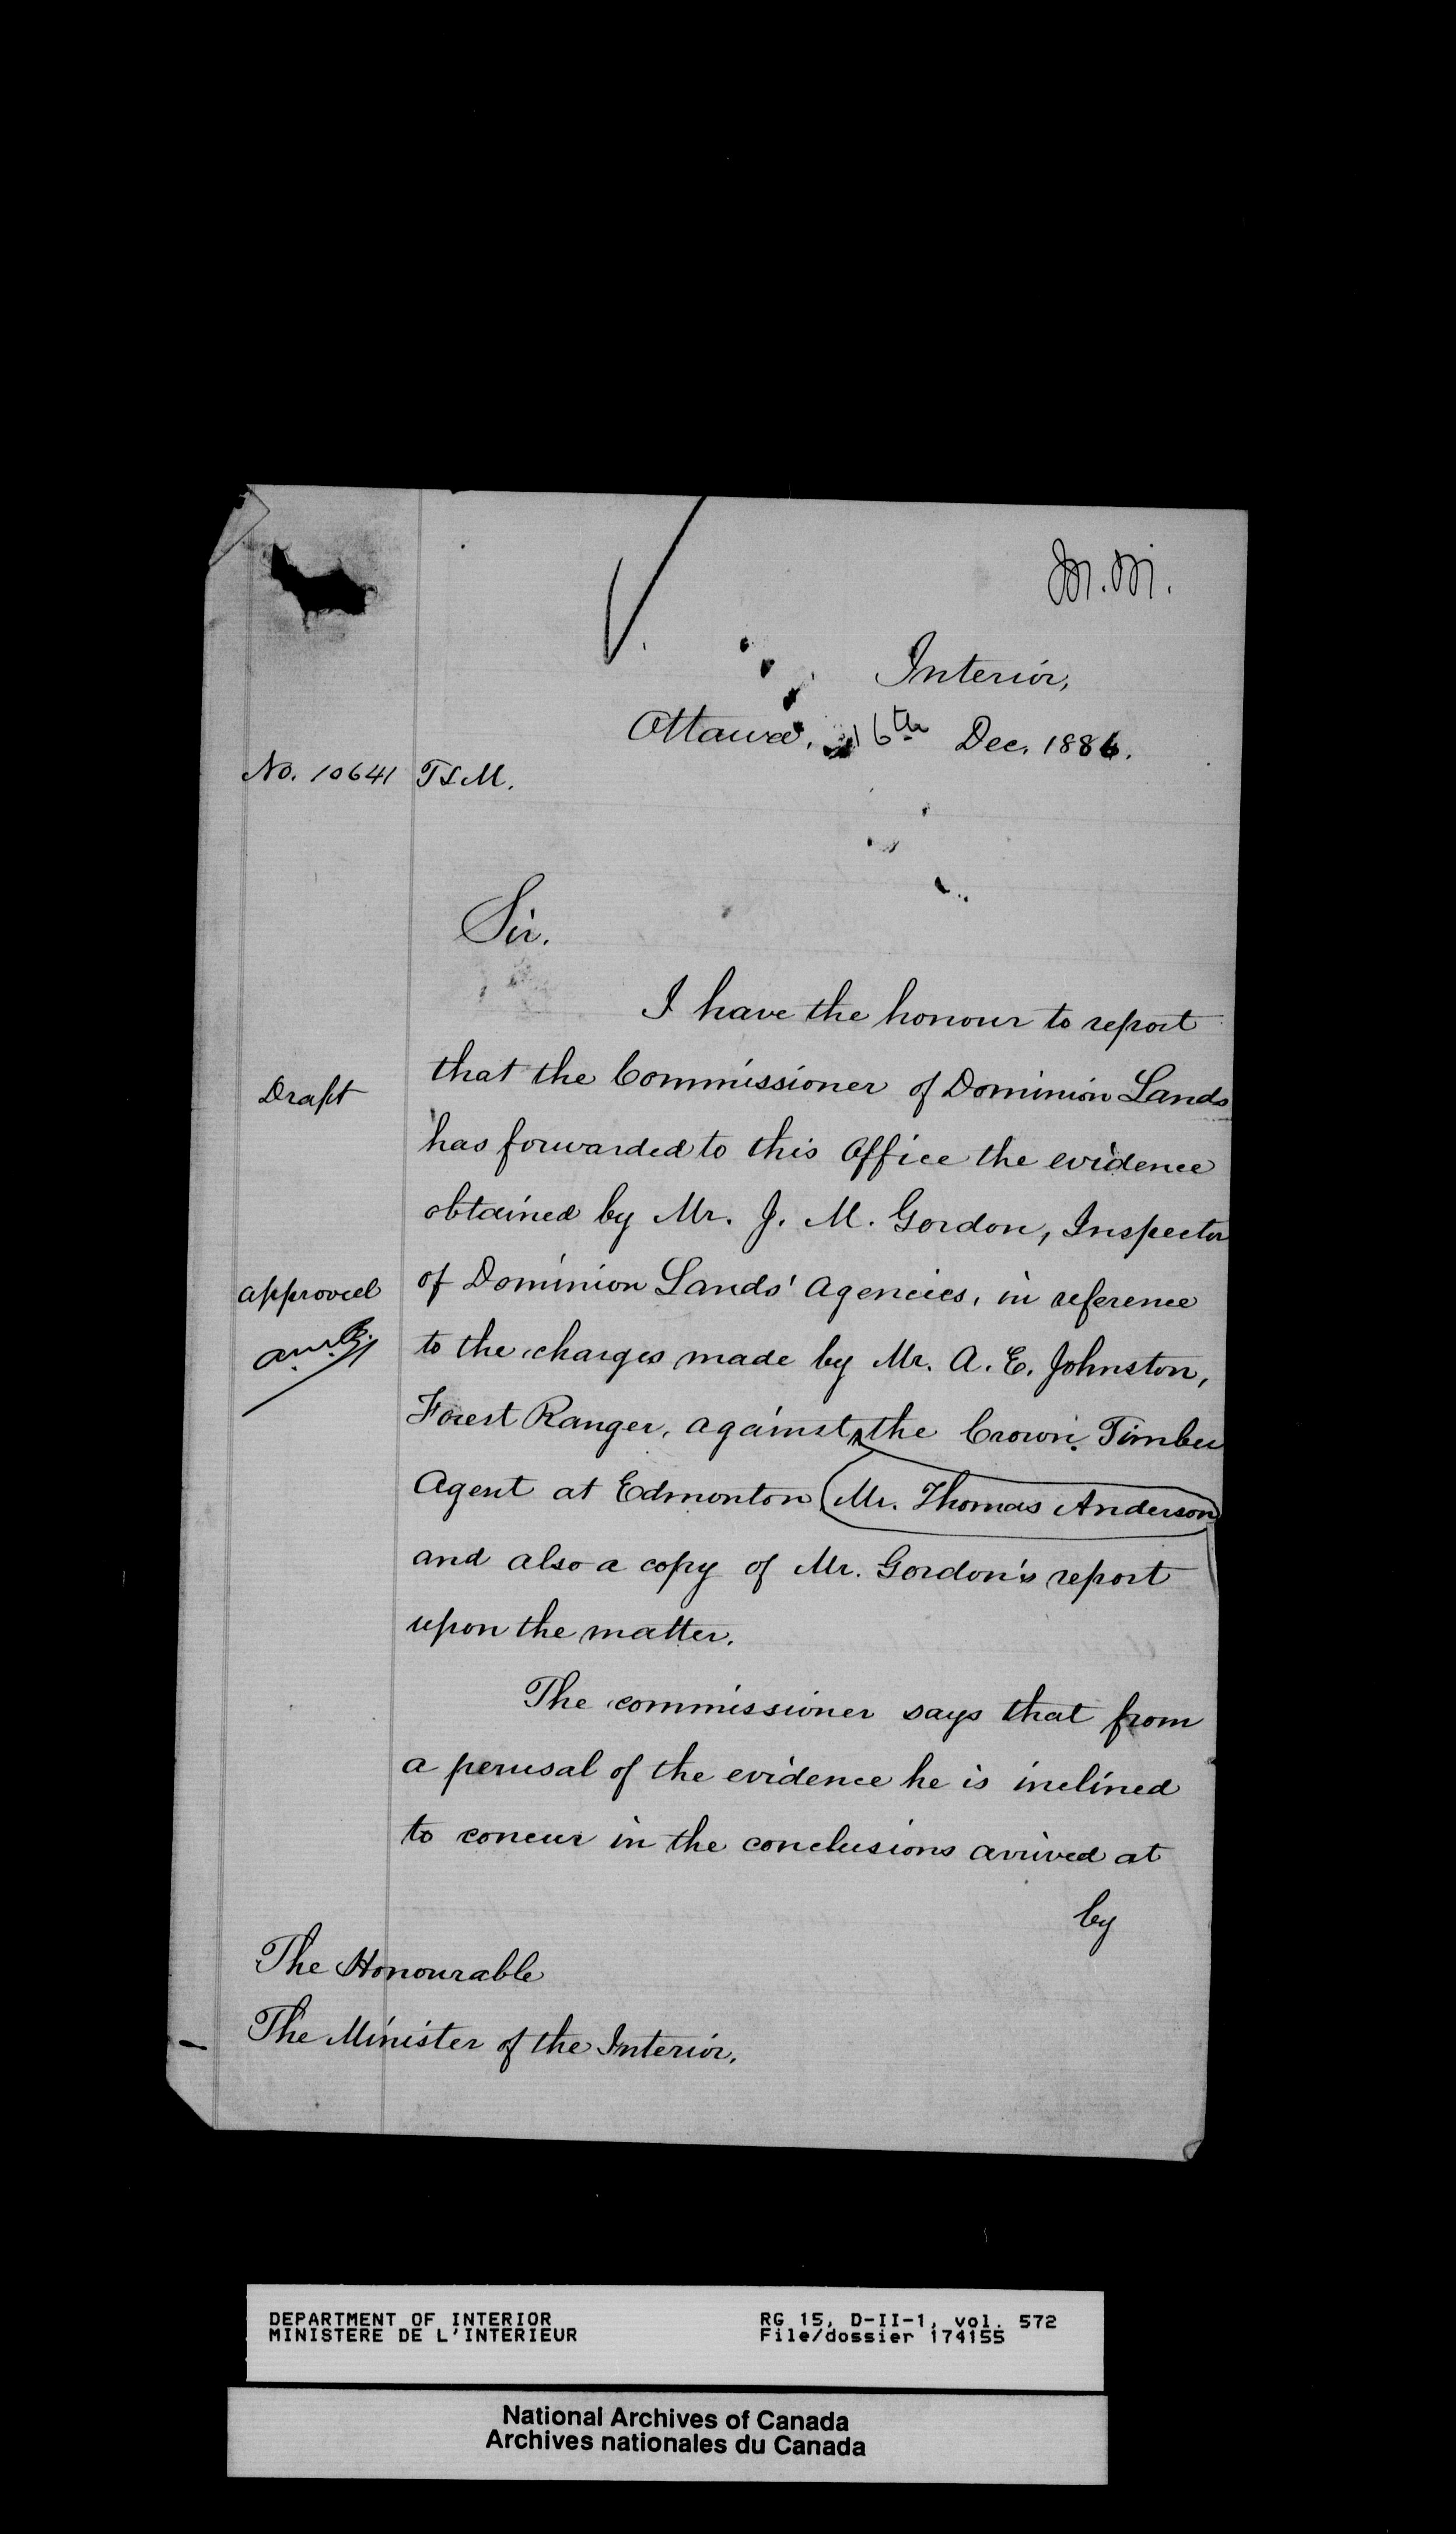 M.M.
Interior,
Ottawa, 16th Dec. 1886.
No. 10641 T&M.
Sir.
I have the honour to report
that the Commissioner of Dominion Lands
Draft
has forwarded to this Office the evidence
obtained by Mr. J. M. Gordon, Inspector
of Dominion Lands' Agencies, in reference
approved
to the charges made by Mr. A. E. Johnston,
Forest Ranger, against the Crown Timber
Agent at Edmonton Mr. Thomas Anderson
and also a copy of Mr. Gordon's report
upon the matter.
The commissioner says that from
a perusal of the evidence he is inclined
to concur in the conclusions arrived at
by
The Honourable
The Minister of the Interior.
DEPARTMENT OF INTERIOR
MINISTERE DE L'INTERIEUR
RG 15, D-II-1, vol. 572
File/dossier 174155
National Archives of Canada
Archives nationales du Canada